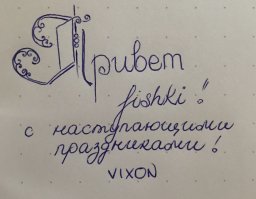 Привет
fishki!!
с наступающими
праздниками!
VIXON